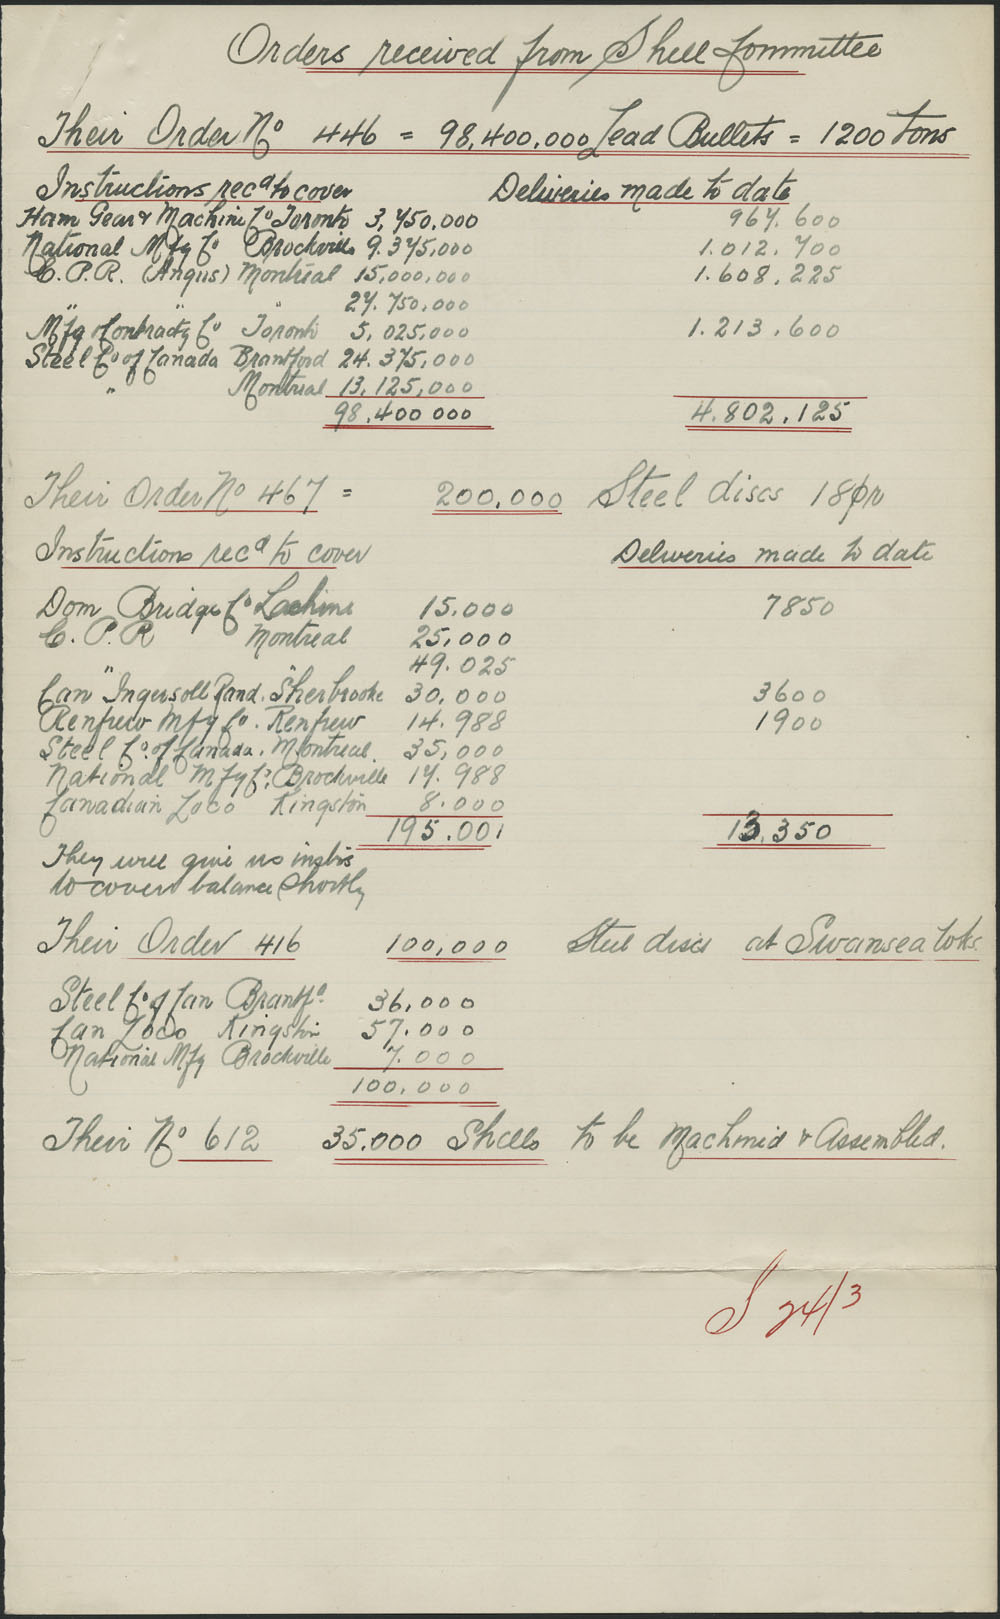 Orders received from Shell Committee
Their Order No 446 = 98,400,000 Lead Bullets = 1200 Tons
Instructions recd to cover Deliveries made to date
Ham Gear & Machine Co Toronto 3,750,000 967.600
National Mfg Co Brockville 9.375,000 1.012.700
C.P.R. (Angus) Montreal 15,000,000 1.608.225
" " " 27.750.000
Mfg Contractg Co Toronto 5,025,000 1.213.600
Steel Co of Canada Brantford 24.375,000
" Montreal 13,125,000
98,400 000 4.802.125
Their Order No 467 = 200,000 Steel discs 18 pr
Instructions recd to cover Deliveries made to date
Dom Bridge Co Lachine 15.000 7850
C.P.R Montreal 25,000
" " 49.025
Can Ingersoll Rand. Sherbrooke 30,000 3600
Renfrew Mfg Co. Renfrew 14.988 1900
Steel Co. of Canada. Montreal. 35,000
National Mfg Co. Brockville 17.988
Canadian Loco Kingston 8.000
195.001 13,350
They will give us instrs
to cover balance shortly
Their Order 416 100,000 Steel discs at Swansea Wks.
Steel Co of Can Brantfd 36,000
Can Loco Kingston 57.000
National Mfg Brockville 7.000
100,000
Their No 612 35.000 Shells to be Machined & Assembled.
24/3